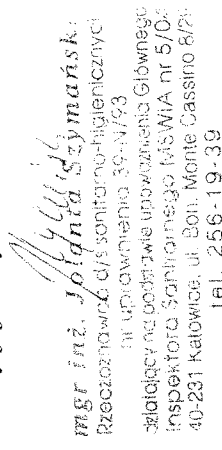 mgr inż. Jolanta Szymańsk
Rzeczoznawca d/s sanitarno-higienicznyc
nr uprawnienia 39-N/93
działający na podstawie upoważnienia Głównego
Inspektora Sanitarnego MSWiA nr 5/0
40-231 Katowice, ul. Boh. Monte Cassino 8/2
tel. 256-19-39